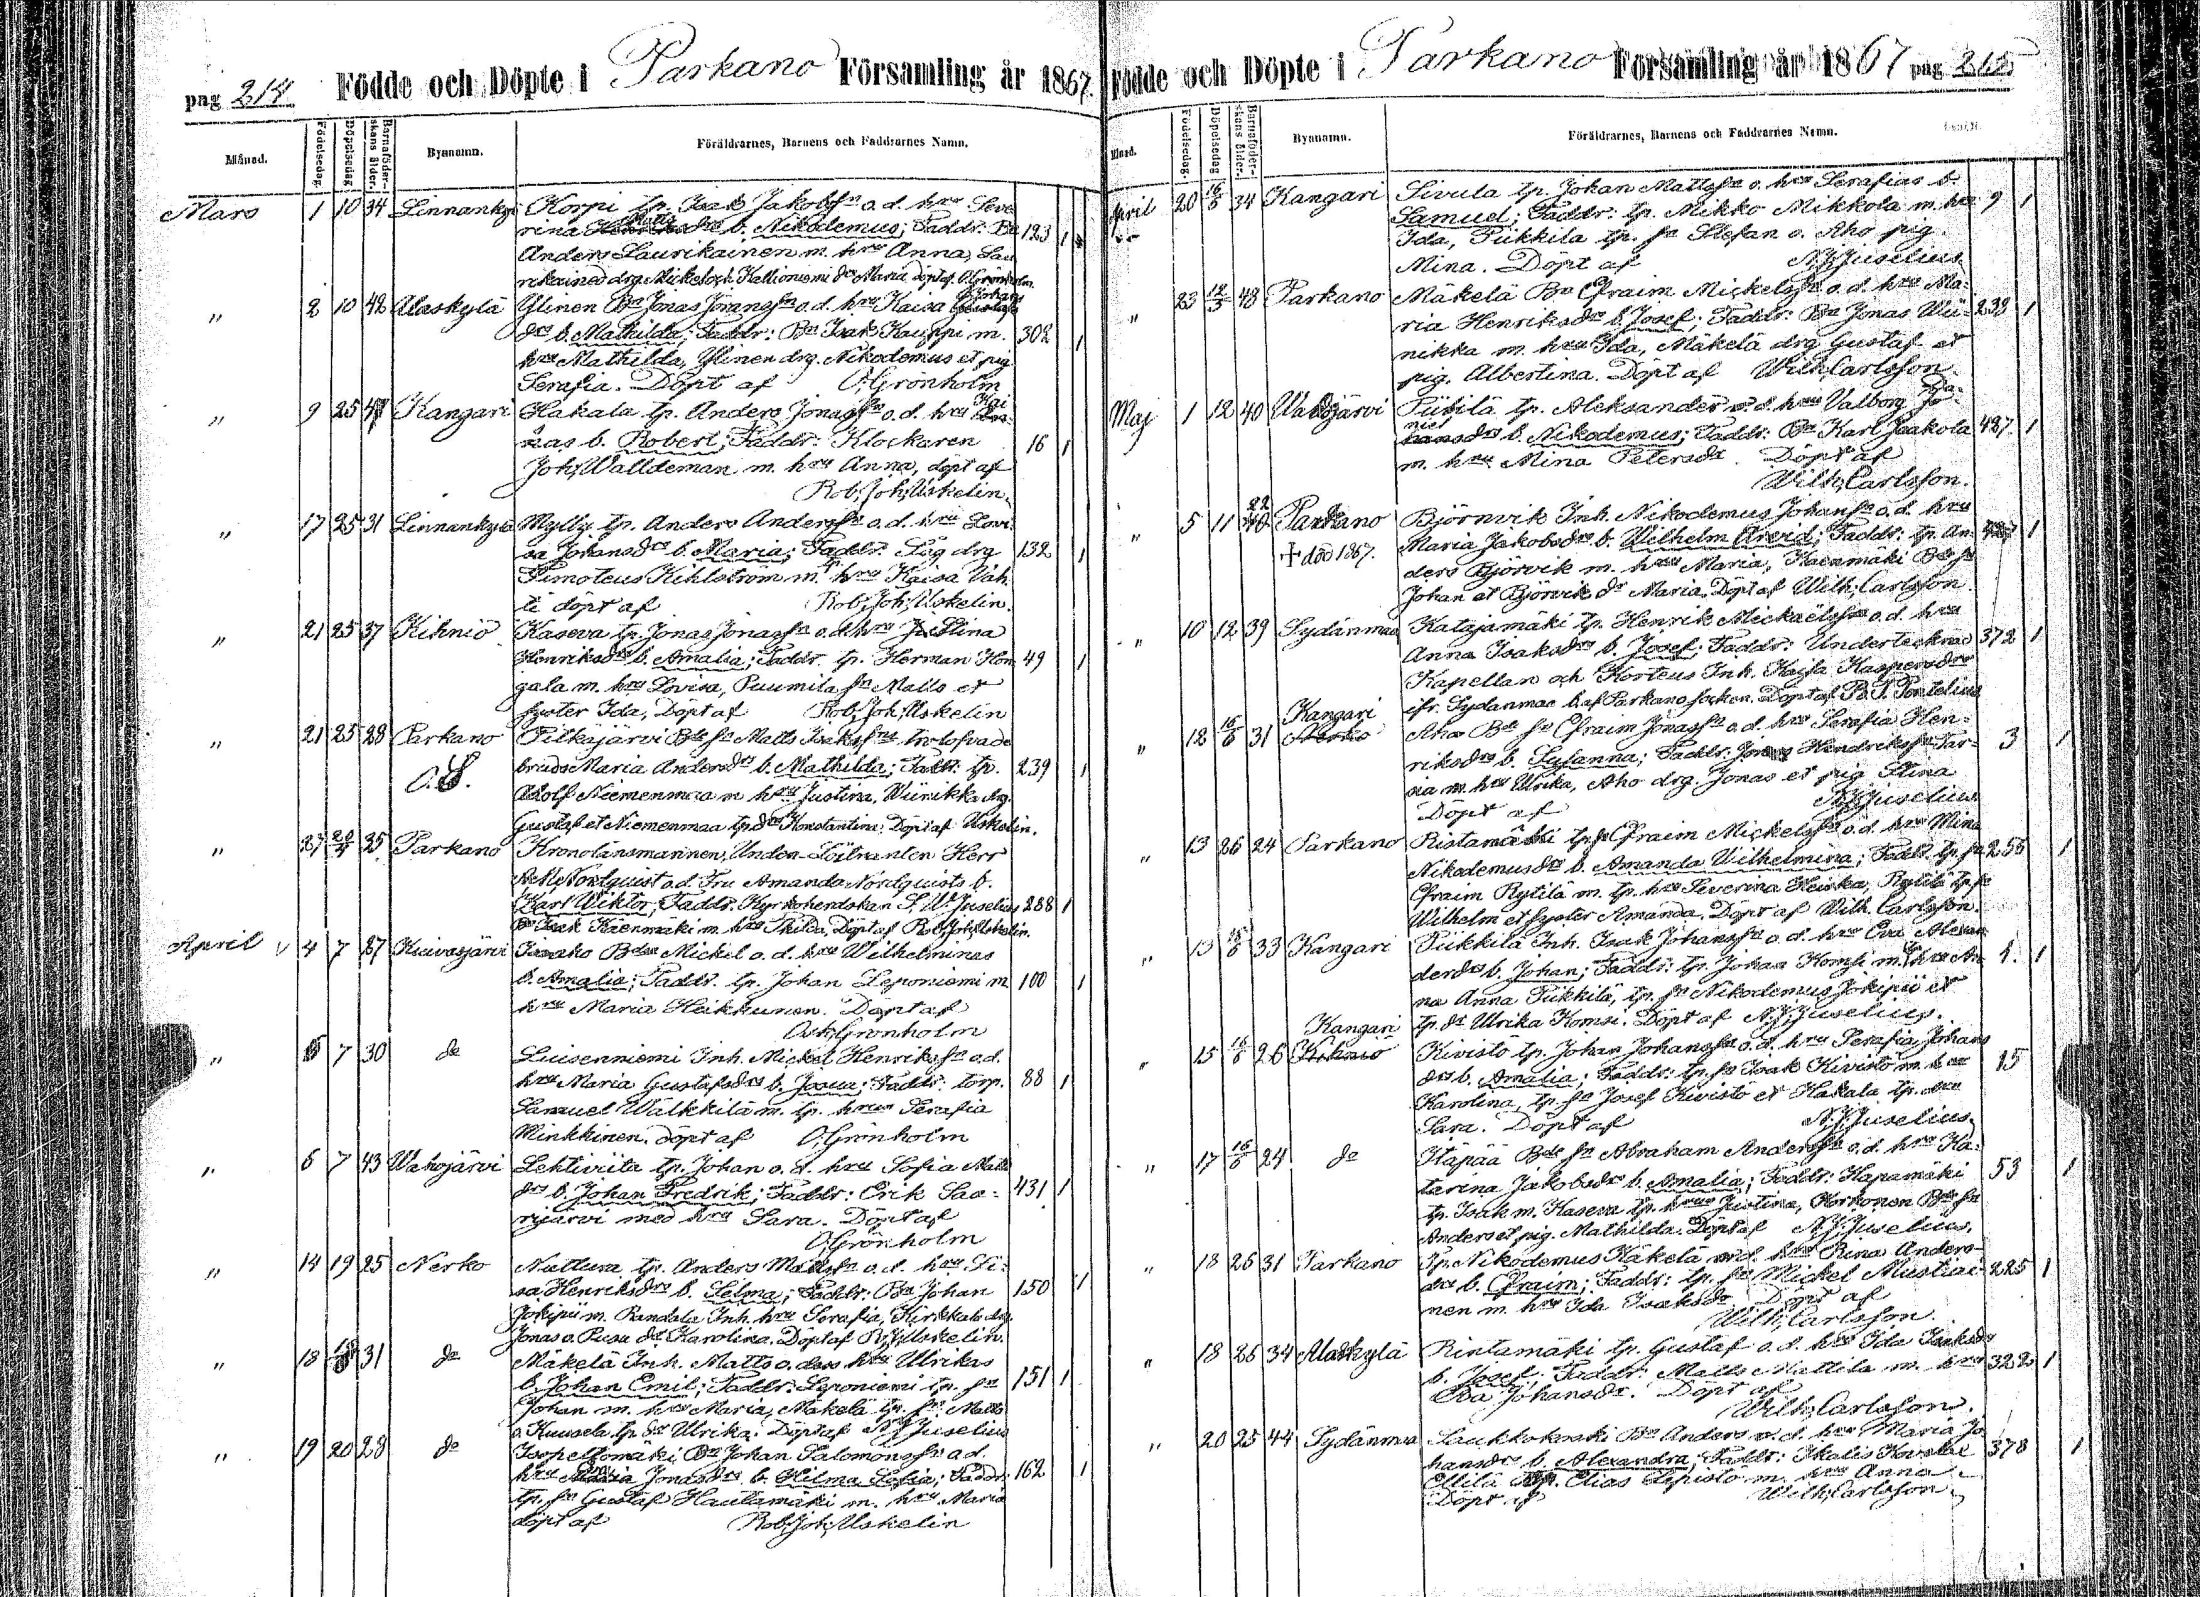 pag 214. Födde och Döpte i Parkano Församling år 1867.
Månad. Födelsedag. Döpelsedag Barnaföder-skans ålder. Bynamn. Föräldrarnes, Barnens och Faddrarnes Namn.
Mars 1 10 34 Linnankylä Korpi tp. Isak Jakobssn o. d. hru Seve
rina Matts drs b. Nikodemus; Faddr: Bn 123 1
Anders Laurikainen m. hru Anna, Lau
rikainen drg. Mickel och Kallioniemi dr Maria döpt af O. Grönholm
" 2 10 42 Alaskylä Ylinen Bn Jonas Jöranssn o. d. hru Kaisa Johans
drs b. Mathilda; Faddr: Bn Isak Kauppi m. 302 1
hru Mathilda, Ylinen drg. Nikodemus et pig
Serafia. Döpt af O. Grönholm
" 9 25 Kangari Hakala tp. Anders Jonassn o. d. hru Kai
sas b. Robert; Faddr: Klockaren 16 1
Joh. Walldeman m. hru Anna, döpt af
Rob. Joh. Uskelin.
" 17 25 31 Linnankylä Mylly tp. Anders Anderssn o. d. hru Lovi
sa Johansdrs b. Maria; Faddr: Såg drg 132 1
Timoteus Kihlström m. hru Kaisa Vah
ti döpt af Rob. Joh. Uskelin.
" 21 25 37 Kihniö Kaseva tp. Jonas Jonassn o. d. hru Stina
Henriksdrs b. Amalia; Faddr. tp. Herman Hon 49 1
gala m. hru Lovisa, Puumila sn Matts et
syster Ida, Döpt af Rob. Joh. Uskelin
" 21 25 28 Parkano Pitkäjärvi Bde sn Matts Isakssns trolofvade
bruds Maria Andersdrs b. Mathilda; Faddr: tp. 239 1
Adolf Niemenmaa m hru Justina, Wiinikka drg.
Gustaf et Niemenmaa tp. dr Konstantina. Döpt af Uskelin.
" 27 25 Parkano Kronolänsmannen, Under-Löitnanten Herr
Nordquist o. d. Fru Amanda Nordquists b.
Karl Wiktor; Faddr. Kyrkoherdskan S. W. Juselius 288 1
Isak Käenmäki m. hru Thilda, Döpt af Rob. Joh. Uskelin.
April 4 7 27 Kuivasjärvi Mickel o. d. hru Wilhelminas
b. Amalia; Faddr. tp. Johan Leponiemi m 100 1
hru Maria Heikkunen. Döpt af
Osk. Grönholm
" 5 7 30 do Luiseniemi Inh. Mickel Henrikssn o. d.
hru Maria Gustafsdrs b. Josua; Faddr: torp. 88 1
Samuel Wälkkilä m. tp. hrun Serafia
Minkkinen. döpt af O. Grönholm
" 6 7 43 Wahojärvi Lehtiviita tp. Johan o. d. hru Sofia Matts
drs b. Johan Fredrik; Faddr: Erik Saa- 431 1
rijärvi med hru Sara. Döpt af
O. Grönholm
" 14 19 25 Nerko Nattura tp. Anders Mattssn o. d. hru Li-
sa Henriksdrs b. Selma; Faddr: Bn Johan 150 1
Jokipii m. Randala Inh. hru Serafia, Kirkkala drg.
Jonas o. Pusa dr Karolina. Döpt af R. J. Uskelin.
" 18 31 do Mäkelä Inh. Matts o. dess hru Ulrikas
b. Johan Emil; Faddr: Leponiemi tp. sn 151 1
Johan m. hru Maria, Mäkelä tp. sn Matts
o. Kuusela tp. dr Ulrika. Döpt af N. J. Juselius
" 19 20 28 do Bn Johan Salomonssn o. d.
hru Jonasdrs b. Hilma Sofia; Faddr: 162 1
tp. sn Gustaf Hautamäki m. hru Maria
döpt af Rob. Joh. Uskelin
Födde och Döpte i Parkano Församling år 1867 pag 215
Månad. Födelsedag. Döpelsedag Barnaföder-skans ålder. Bynamn. Föräldrarnes, Barnens och Faddrarnes Namn.
April 20 16/6 34 Kangari Sivula tp. Johan Mattssn o. hru Serafias b.
Samuel; Faddr: tp. Mikko Mikkola m. hru 9 1
Ida, Piikkilä tp. sn Stefan o. Aho pig.
Mina. Döpt af N. J. Juselius
" 23 12/5 48 Parkano Mäkelä Bn Efraim Mickelssn o. d. hru Ma-
ria Henriksdrs b. Josef; Faddr: Bn Jonas Wii- 239 1
nikka m. hru Ida, Mäkelä drg Gustaf et
pig. Albertina. Döpt af Wilh. Carlsson.
Maj 1 12 40 Wahojärvi tp. Aleksander o. d. hru Valborg Da-
niels drs b. Nikodemus; Faddr: Bn Karl Jaakola 427 1
m. hru Mina Petersdr. Döpt af
Wilh. Carlsson.
" 5 11 22 Parkano Björnvik Inh. Nikodemus Johanssn o. d. hru
† död 1867. Maria Jakobsdrs b. Wilhelm Arvid; Faddr: tp. An- 1
ders Björvik m. hru Maria, Kaenmäki Bde sn
Johan et Björvik dr Maria. Döpt af Wilh. Carlsson.
" 10 12 39 Sydänmaa Katajamäki tp. Henrik Mickaëlssn o. d. hru
Anna Isaksdrs b. Josef; Faddr: Undertecknad 372 1
Kapellan och Korteus Inh. Kajsa Kaspersdr
ifr. Sydänmaa b. af Parkano socken. Döpt af Pontelius
" 12 16/6 31 Kangari Aho Bde sn Efraim Jonassn o. d. hru Serafia Hen-
riksdrs b. Susanna; Faddr: Jonas Hendrikssn Tar-
sia m. hru Ulrika, Aho drg. Jonas et pig Stina 3 1
Döpt af N. J. Juselius
" 13 26 24 Parkano Ristamäki tp. sn Efraim Mickelssn o. d. hru Mina
Nikodemusdrs b. Amanda Wilhelmina; Faddr. tp. sn 256 1
Efraim Rytilä m. tp. hru Severina Heiska, Rytilä tp. sn
Wilhelm et syster Amanda. Döpt af Wilh. Carlsson.
" 13 33 Kangari Piikkilä Inh. Isak Johanssn o. d. hru Eva Alexan
derdrs b. Johan; Faddr: tp. Johan Komsi m. hru An 1. 1
na Anna Piikkilä, tp. sn Nikodemus Jokipii et
tp. dr Ulrika Komsi. Döpt af N. J. Juselius.
" 15 16/6 26 Kangari Kivistö tp. Johan Johanssn o. d. hru Serafia Johans
drs b. Amalia; Faddr: tp. sn Isak Kivistö m. hru 15
Karolina, tp. sn Josef Kivistö et Hakala tp. dr
Sara. Döpt af N. J. Juselius.
" 17 16/6 24 do Itäpää Bde sn Abraham Anderssn o. d. hru Ka-
tarina Jakobsdrs b. Amalia; Faddr: Hapamäki 53 1
tp. Isak m. Kaseva tp. hru Justina, Korkonen Bde sn
Anders et pig. Mathilda. Döpt af N. J. Juselius.
" 18 26 31 Parkano Tp. Nikodemus Käkelä o. d. hru Rina Anders-
drs b. Efraim; Faddr: tp. sn Mickel Mustiai- 225 1
nen m. hru Ida Isaksdr Döpt af
Wilh. Carlsson.
" 18 26 34 Alaskylä Rintamäki tp. Gustaf o. d. hru Ida Isaksdrs
b. Josef; Faddr: Matts Mattila m. hru 322 1
Eva Johansdr. Döpt af
Wilh. Carlsson.
" 20 25 44 Sydänmaa Saukkokoski Bn Anders o. d. hru Maria Jo
hansdrs b. Alexandra; Faddr: Ikalis 378 1
tp. Elias Lepistö m. hru Anna.
Döpt af Wilh. Carlsson.